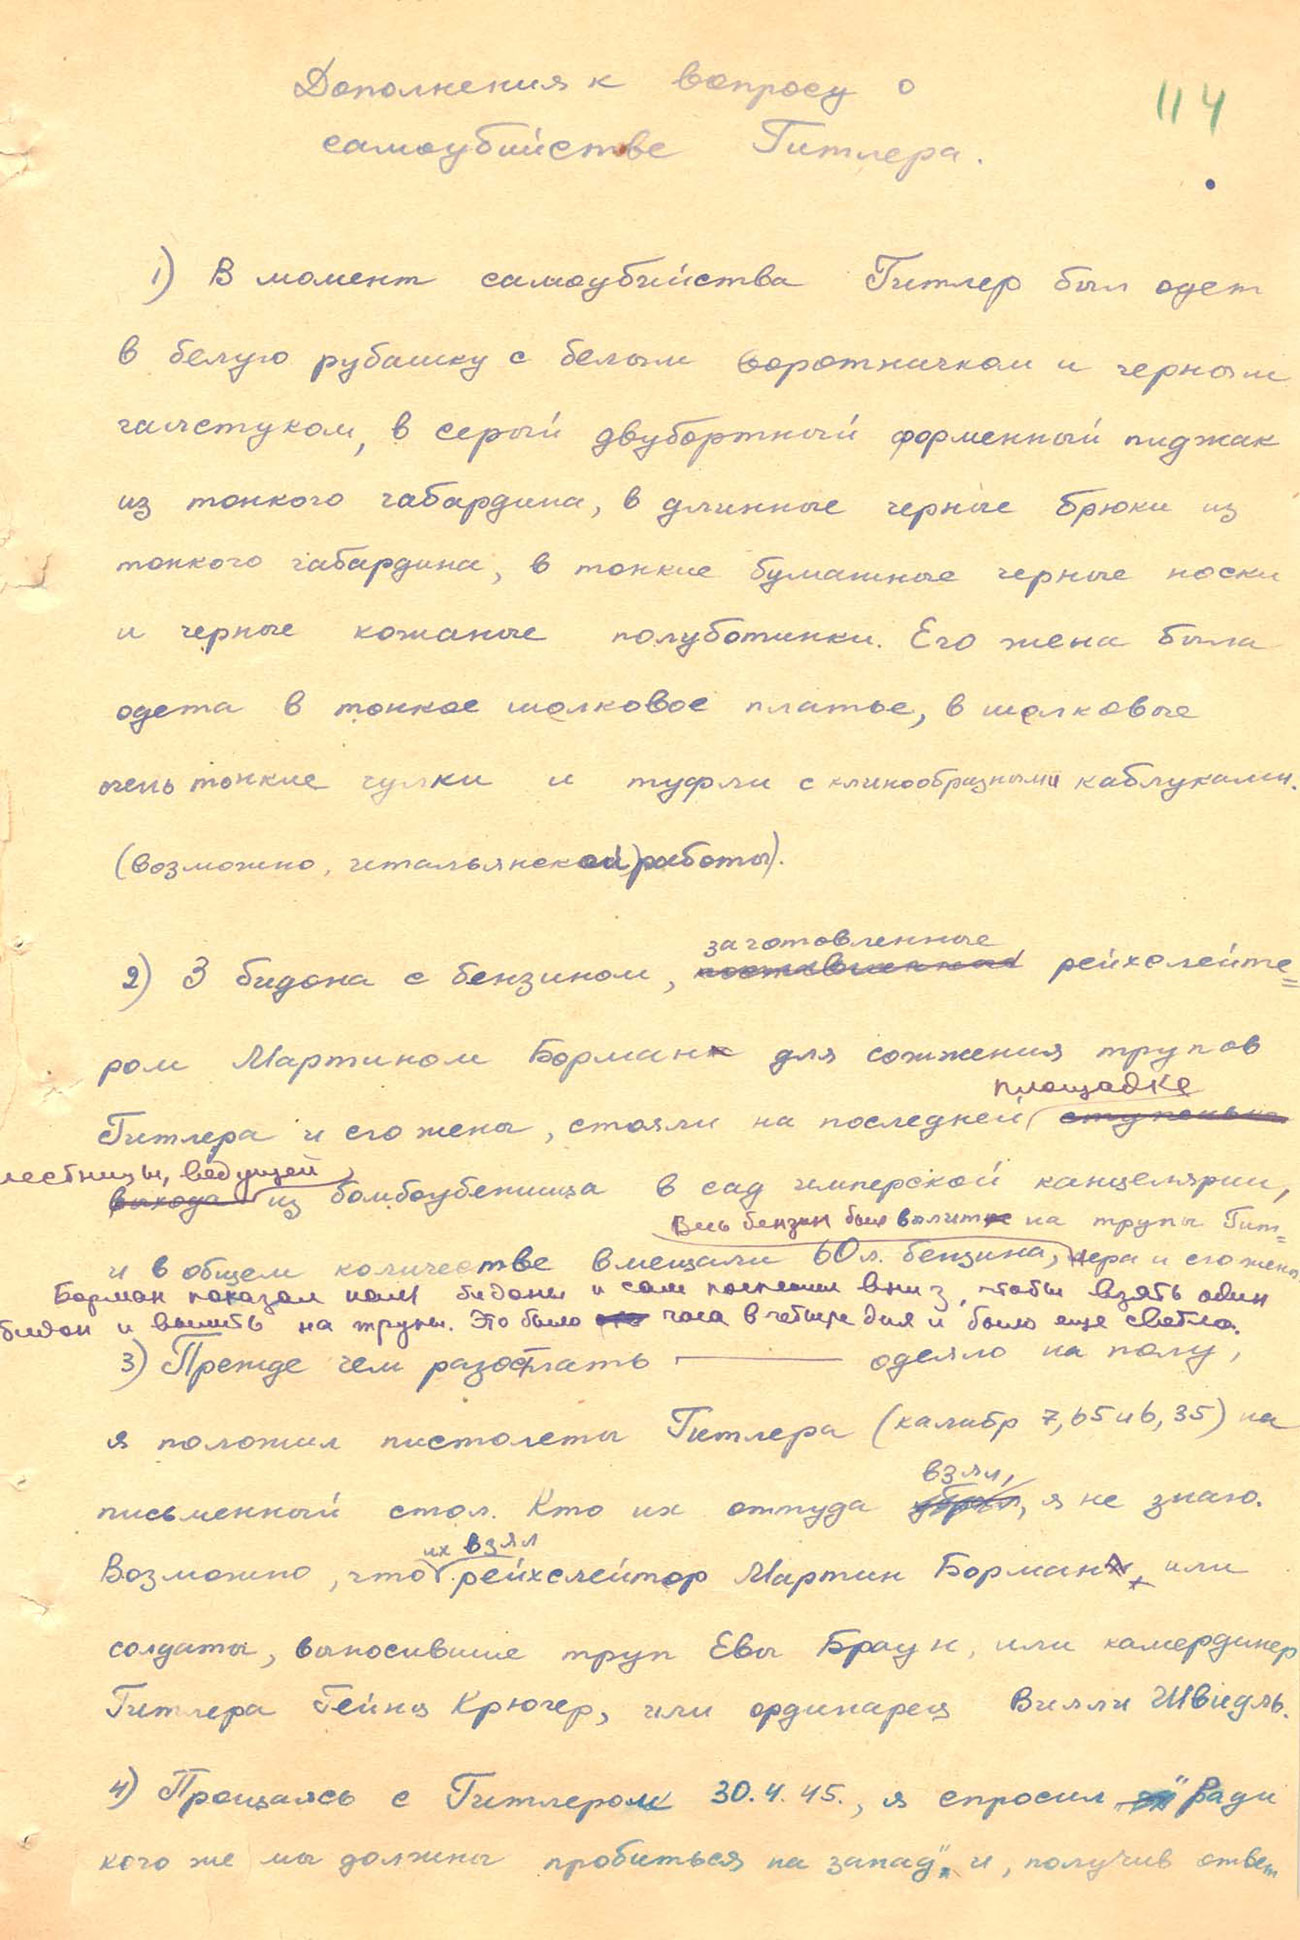 Дополнения к вопросу о
114
самоубийстве Гитлера.
1) В момент самоубийства Гитлер был одет
в белую рубашку с белым воротничком и черным
галстуком, в серый двубортный форменный пиджак
из тонкого габардина, в длинные черные брюки из
тонкого габардина, в тонкие бумажные черные носки
и черные кожаные полуботинки. Его жена была
одета в тонкое шолковое платье, в шолковые
очень тонкие чулки и туфли с клинообразными каблуками.
(возможно, итальянской) работы).
заготовленные
2) 3 бидона с бензином, рейхслейте=
ром Мартином Борман для сожжения трупов
площадке
Гитлера и его жены, стояли на последней
лестницы, ведущей
выхода из бомбоубежища в сад имперской канцелярии,
Весь бензин был вылит на трупы Гит=
и в общем количестве вмещали 60 л. бензина, лера и его жены.
Борман показал нам бидоны и сам поспешил вниз, чтобы взять один
бидон и вылить на трупы. Это было часа в четыре дня и было еще светло.
3) Прежде чем разостлать одеяло на полу,
я положил пистолеты Гитлера (калибр 7,65 и 6,35) на
взял,
письменный стол. Кто их оттуда я не знаю.
их взял
Возможно, что рейхслейтор Мартин Борман, или
солдаты, выносившие труп Евы Браун, или камердинер
Гитлера Гейнц Крюгер, или ординарец Вилли Швидль.
4) Прощаясь с Гитлером 30.4.45., я спросил "Ради
кого же мы должны пробиться на запад", и, получив ответ